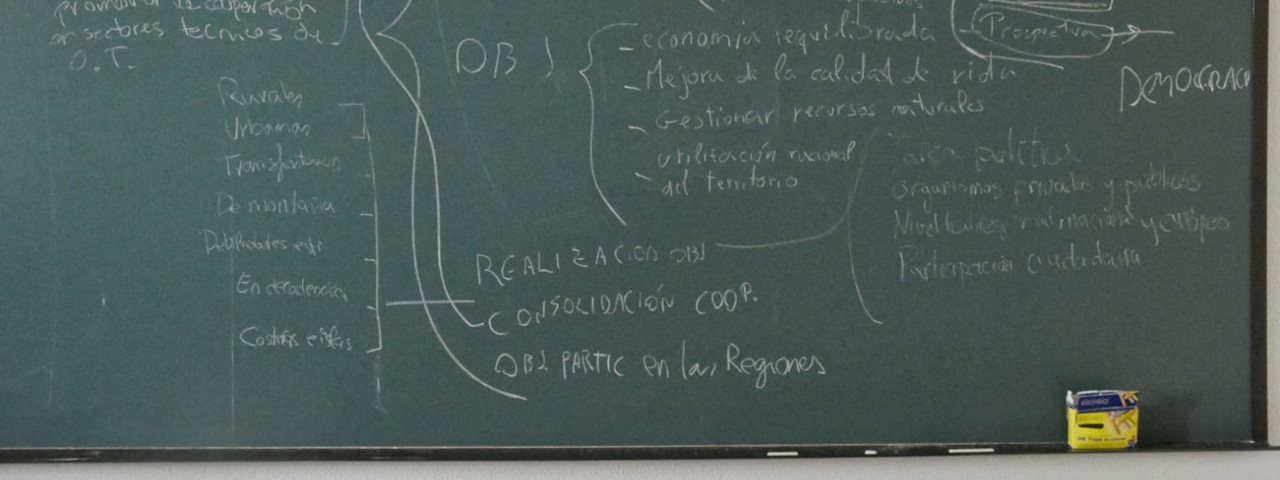 promover la cooperación
en sectores tecnicos de
O.T.
Rurales
Urbanas
Transfronterizas
De montaña
En decadencia
Costas e islas
OBJ
- economía equilibrada
- Mejora de la calidad de vida
- Gestionar recursos naturales
- utilización racional
del territorio
REALIZACION OBJ
CONSOLIDACIÓN COOP.
OBJ PARTIC en las Regiones
Prospectiva
DEMOCRACI
Tarea politica
organismos privados y públicos
nacional y europeo
Participación ciudadana